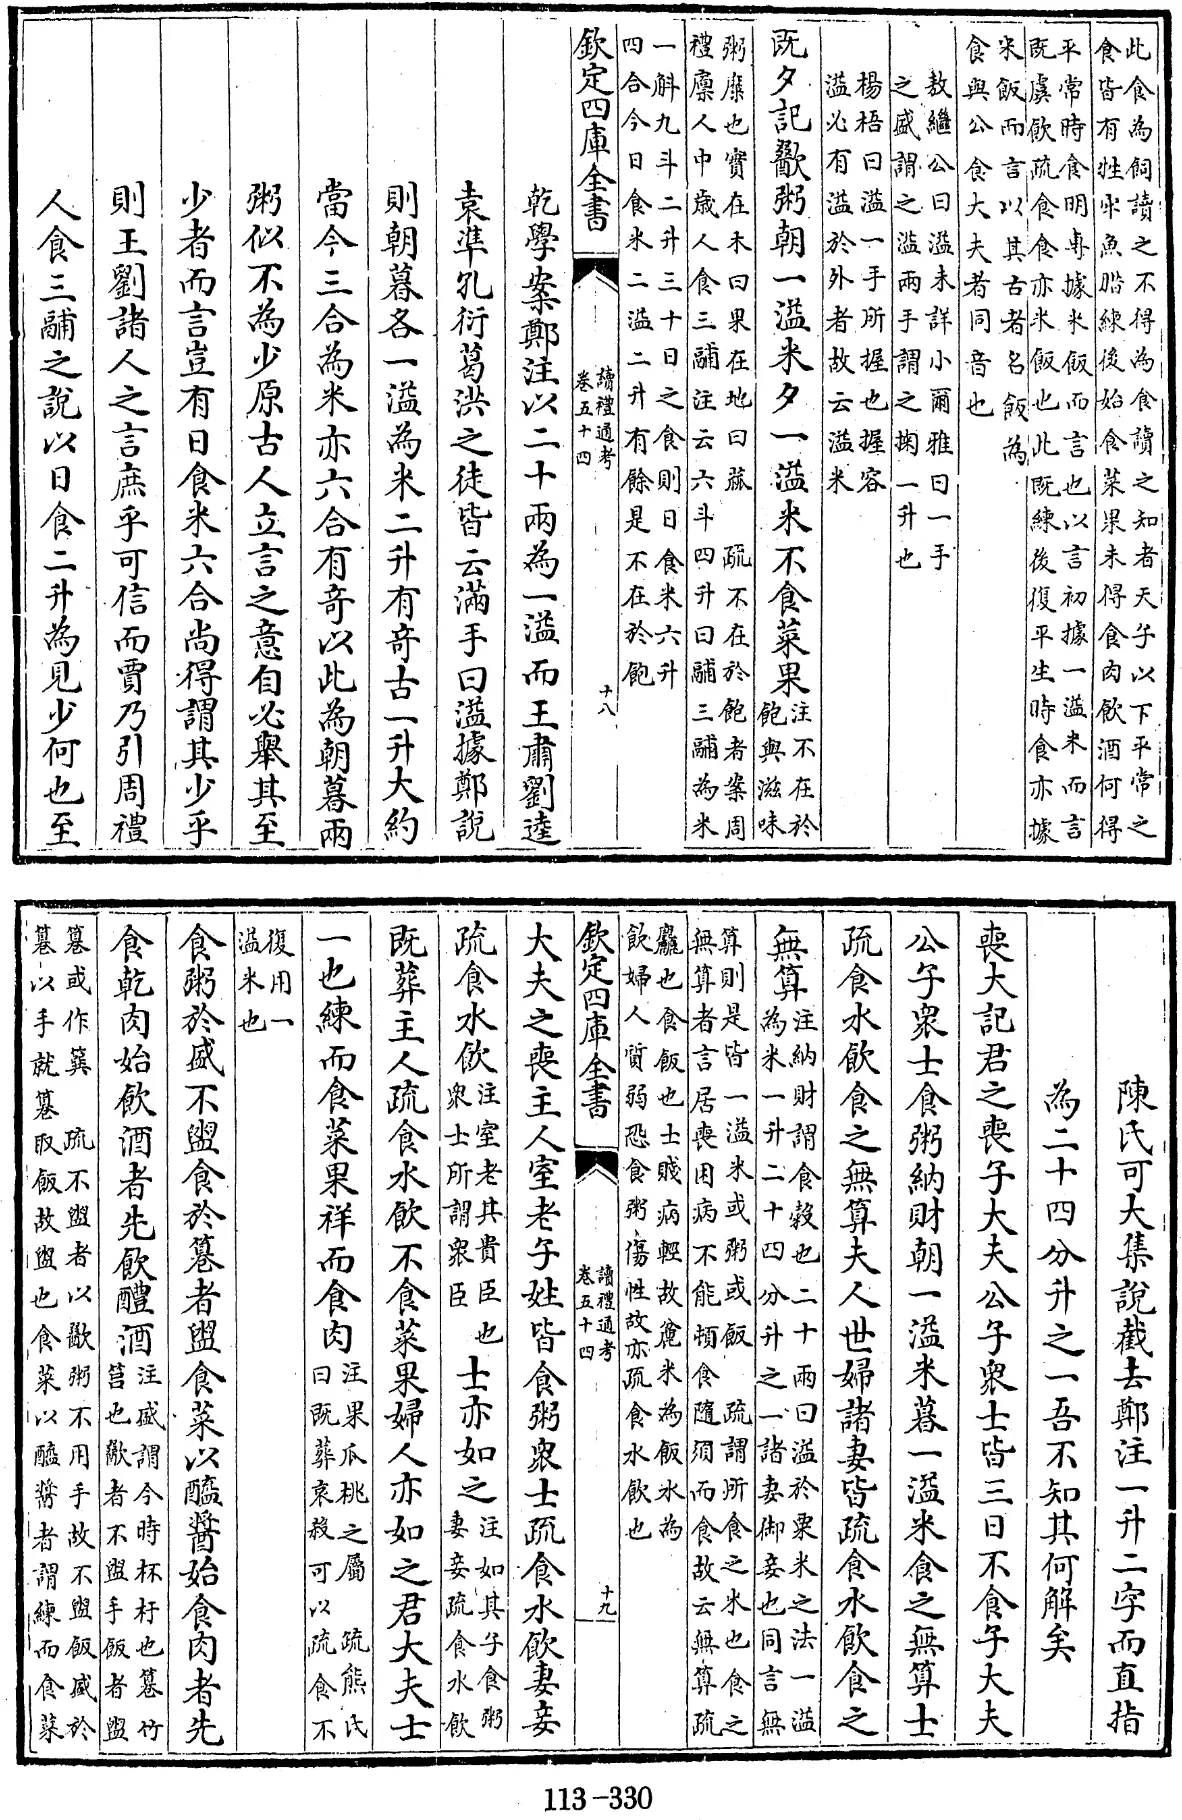 此食為飼讀之不得為食讀之知者天子以下平常之
食皆有牲牢魚腊練後始食菜果未得食肉飲酒何得
平常時食明專據米飯而言也以言初據一溢米而言
既虞飲疏食食亦米飯也此既練後復平生時食亦據
米飯而言以其古者名飯為
食與公食大夫者同音也
敖繼公曰溢未詳小爾雅曰一手
之盛謂之溢兩手謂之掬一升也
楊梧曰溢一手所握也握容
溢必有溢於外者故云溢米
既夕記歠粥朝一溢米夕一溢米不食菜果
注不在於
飽與滋味
粥糜也實在木曰果在地曰蓏 疏不在於飽者案周
禮廩人中歲人食三鬴注云六斗四升曰鬴三鬴為米
一斛九斗二升三十日之食則日食米六升
四合今日食米二溢二升有餘是不在於飽
欽定四庫全書
讀禮通考
卷五十四
十八
乾學案鄭注以二十兩為一溢而王肅劉逵
袁準孔衍葛洪之徒皆云滿手曰溢據鄭說
則朝暮各一溢為米二升有奇古一升大約
當今三合為米亦六合有奇以此為朝暮兩
粥似不為少原古人立言之意自必舉其至
少者而言豈有日食米六合尚得謂其少乎
則王劉諸人之言庶乎可信而賈乃引周禮
人食三鬴之說以日食二升為見少何也至
陳氏可大集說截去鄭注一升二字而直指
為二十四分升之一吾不知其何解矣
喪大記君之喪子大夫公子衆士皆三日不食子大夫
公子衆士食粥納財朝一溢米暮一溢米食之無算士
疏食水飲食之無算夫人世婦諸妻皆疏食水飲食之
無算
注納財謂食穀也二十兩曰溢於粟米之法一溢
為米一升二十四分升之一諸妻御妾也同言無
算則是皆一溢米或粥或飯 疏謂所食之米也食之
無算者言居喪困病不能頓食隨須而食故云無算疏
麤也食飯也士賤病輕故麄米為飯水為
飲婦人質弱恐食粥傷性故亦疏食水飲也
欽定四庫全書
讀禮通考
卷五十四
十九
大夫之喪主人室老子姓皆食粥衆士疏食水飲妻妾
疏食水飲
注室老其貴臣也
衆士所謂衆臣
士亦如之
注如其子食粥
妻妾疏食水飲
既葬主人疏食水飲不食菜果婦人亦如之君大夫士
一也練而食菜果祥而食肉
注果瓜桃之屬 疏熊氏
曰既葬哀殺可以疏食不
復用一
溢米也
食粥於盛不盥食於篹者盥食菜以醯醬始食肉者先
食乾肉始飲酒者先飲醴酒
注盛謂今時杯杅也篹竹
筥也歠者不盥手飯者盥
篹或作簨 疏不盥者以歠粥不用手故不盥飯盛於
篹以手就篹取飯故盥也食菜以醯醬者謂練而食菜
113-330